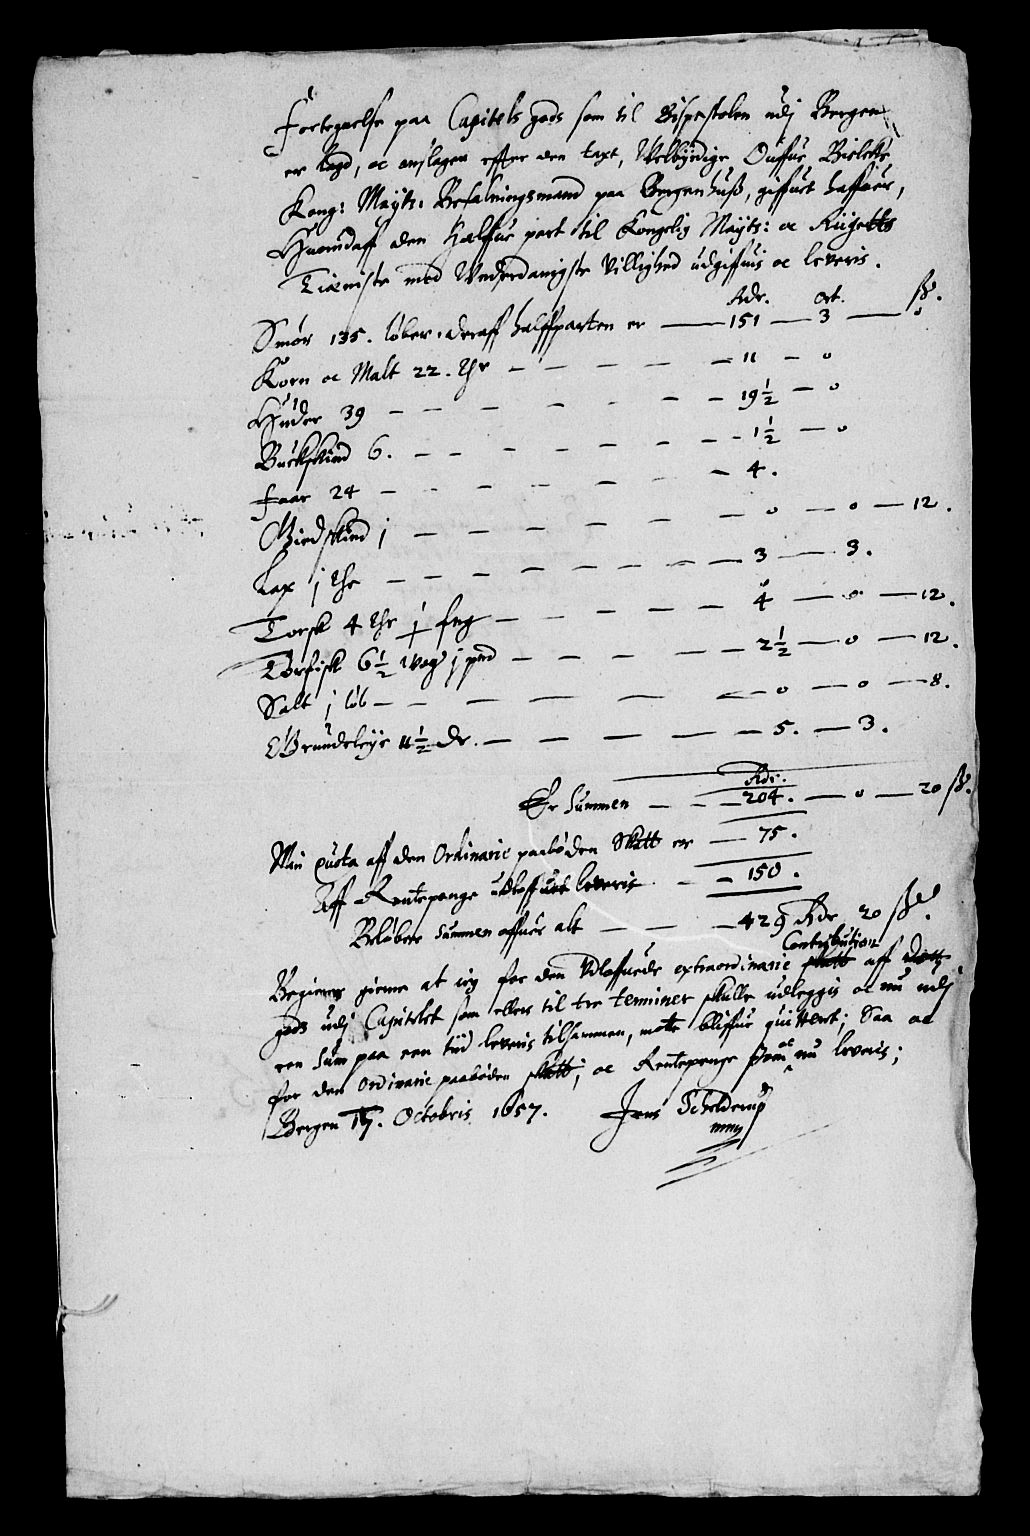 Fortegnelse paa Capitels gods som til Bispestolen udj Bergen
er lagd, oc anslagen efter den taxt, Welbyrdige Ouffue Bielcke
Kong: Mayts: Befalningsmand paa Bergenhuß, giffuet haffuer,
Huoraff den Halffue part til Kongelig Mayts: oc Rigetts
Tieniste med Underdanigste Villighed udgiffuis oc leveris.
Rdr. Ort. ß.
Smör 135. löber, deraff halffparten er 151 3 0
Korn oc Malt 22. Thr 11 0
Huder 39 19½ 0
Buckskind 6. 1½ 0
Faar 24 4.
Giedskind j 0 0 12.
Lax j Thr 3 3.
Torsk 4 Thr 4 0 12.
Törfisk 6½ Wog j pnd 2½ 0 12.
Salt j löb 0 0 8.
Grundeleye 11½ dr. 5. 3.
Rdr.
Er Summen 204. 0 20 ß.
Min quota aff den Ordinarie paaböden Skatt er 75.
Aff Rentepenge leveris 150.
Belöber Summen offuer alt 429 Rdr 20 ß.
Contribution
Begierer gierne at ieg for den Udloffuede extraordinarie skatt aff
gods udj Capitelet som ellers til tre terminer skulle udleggis oc nu udj
een Sum paa een tiid leveris tilsammen, motte bliffue quittert; Saa oc
for den Ordinarie paaböden skatt, oc Rentepenge som oc nu leveris;
Bergen 17. Octobris 1657. Jens Schelderup
mmp